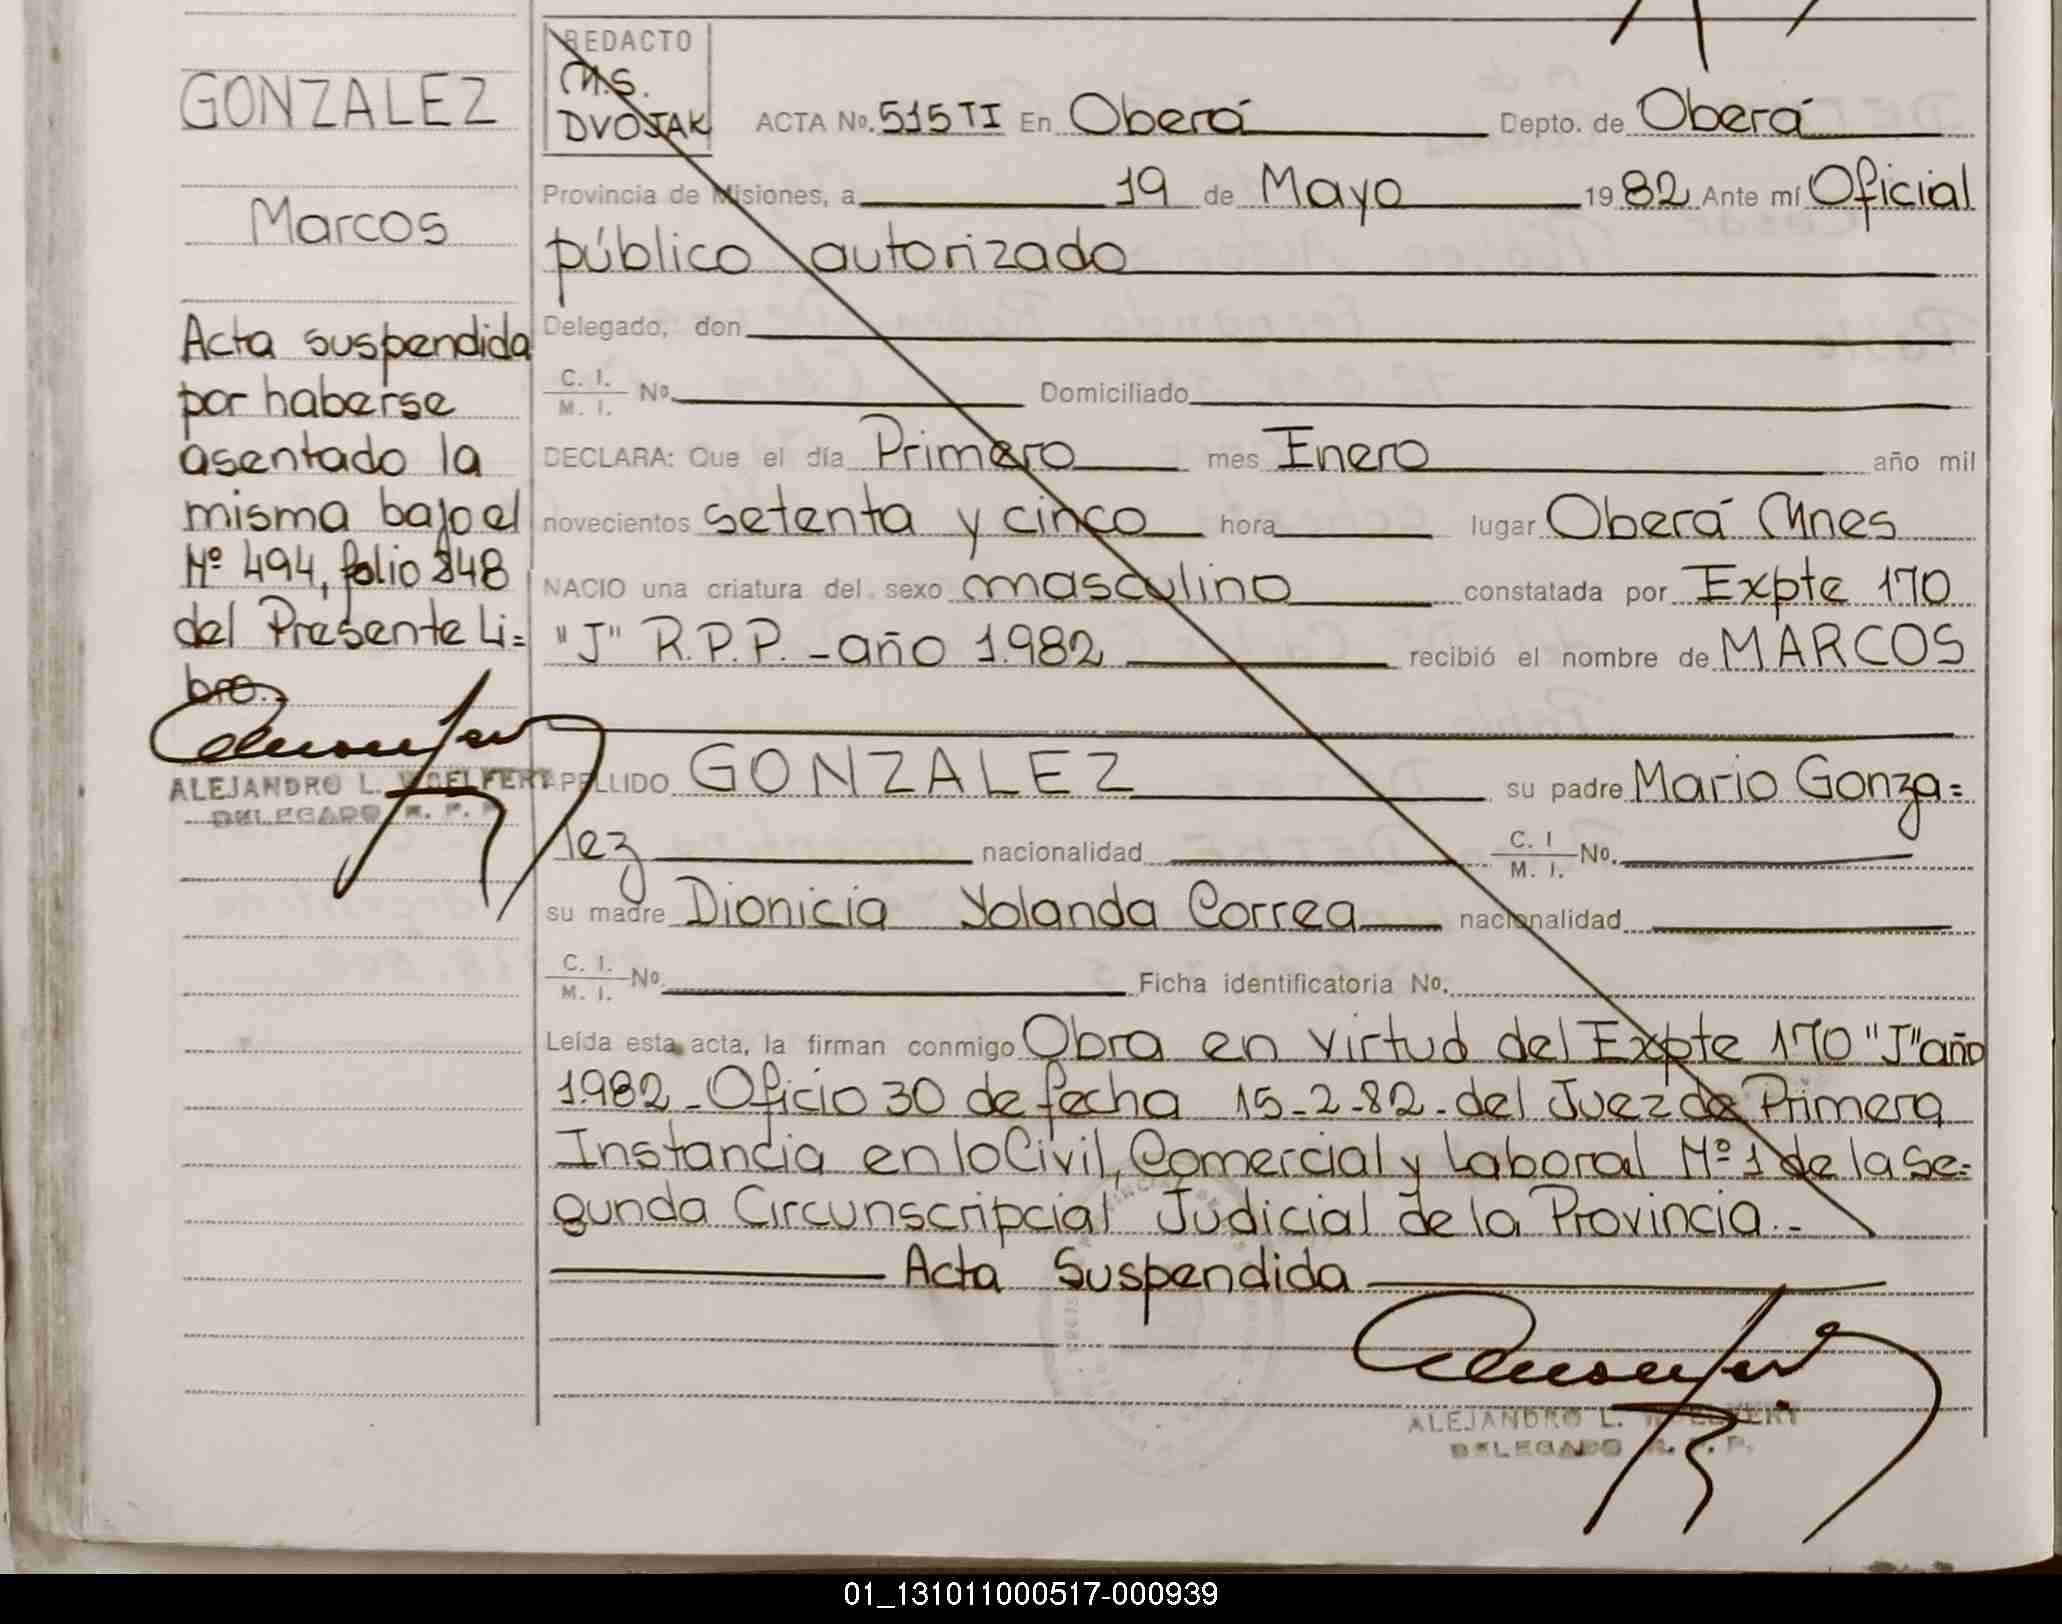 GONZALEZ
Marcos
Acta suspendida
por haberse
asentado la
misma bajo el
Nº 494, folio 348
del Presente Li=
bro.
ALEJANDRO L. WOELFERT
DELEGADO R. P. P.
REDACTO
M.S.
DVOJAK
ACTA No. 515 TI En Oberá Depto. de Oberá
Provincia de Misiones, a 19 de Mayo 1982 Ante mí Oficial
público autorizado
Delegado, don
C. I. / M. I. No. Domiciliado
DECLARA: Que el día Primero mes Enero año mil
novecientos setenta y cinco hora lugar Oberá Mnes
NACIO una criatura del sexo masculino constatada por Expte 170
"J" R.P.P. - año 1.982 recibió el nombre de MARCOS
APELLIDO GONZALEZ su padre Mario Gonza=
lez nacionalidad C. I / M. I. No.
su madre Dionicia Yolanda Correa nacionalidad
C. I. / M. I. No. Ficha identificatoria No.
Leída esta acta, la firman conmigo Obra en virtud del Expte 170 "J" año
1.982 - Oficio 30 de fecha 15-2-82 - del Juez de Primera
Instancia en lo Civil, Comercial y Laboral Nº 1 de la Se=
gunda Circunscripcial Judicial de la Provincia.-
Acta Suspendida
ALEJANDRO L. WOELFERT
DELEGADO R. P. P.
01_131011000517-000939